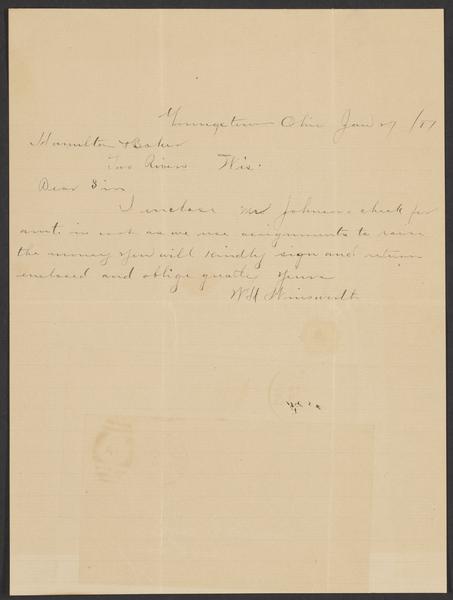 Youngstown Ohio Jan 27 /87
Hamilton & Baker
Two Rivers Wis.
Dear Sirs
I inclose Mr Johnson check for
amt. in cash as we use assignments to raise
the money you will kindly sign and return
enclosed and oblige greatly yours
W H